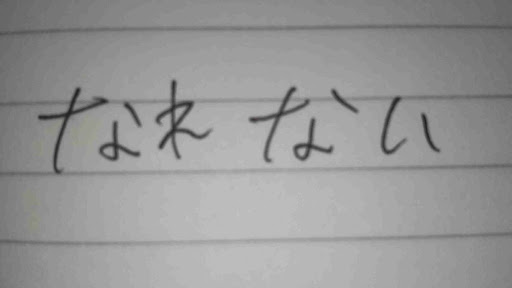 なれない